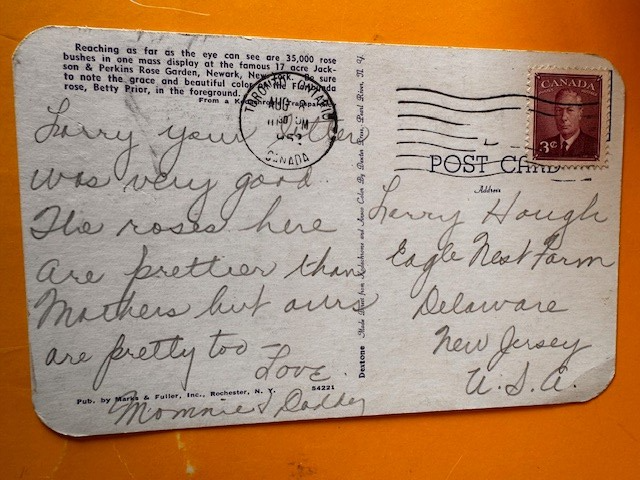 Reaching as far as the eye can see are 35,000 rose
bushes in one mass display at the famous 17 acre Jack-
son & Perkins Rose Garden, Newark, New York. Be sure
to note the grace and beautiful color of the Floribunda
rose, Betty Prior, in the foreground.
From a Kodachrome Transparency
Larry your letter
was very good.
The roses here
are prettier than
Mothers but ours
are pretty too -
Love
Mommie & Daddy
Pub. by Marks & Fuller, Inc., Rochester, N. Y.
54221
Dextone Made Direct from Kodachrome and Ansco Color By Dexter Press, Pearl River, N. Y.
TORONTO ONTARIO
AUG
PM
CANADA
CANADA
3¢
POST CARD
Address
Larry Hough
Eagle Nest Farm
Delaware
New Jersey
U.S.A.